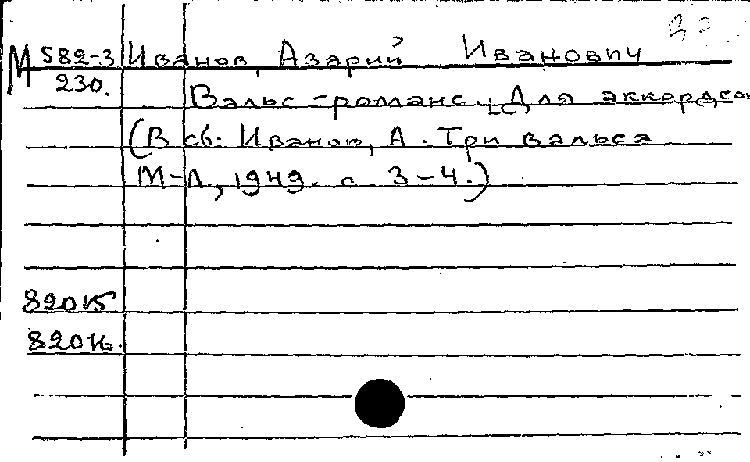 М 582-3 Иванов, Азарий Иванович
230.
Вальс-романс. Для аккордеон
(В сб: Иванов, А. Три вальса
М-Л, 1949. с. 3-4.)
82015
82016.